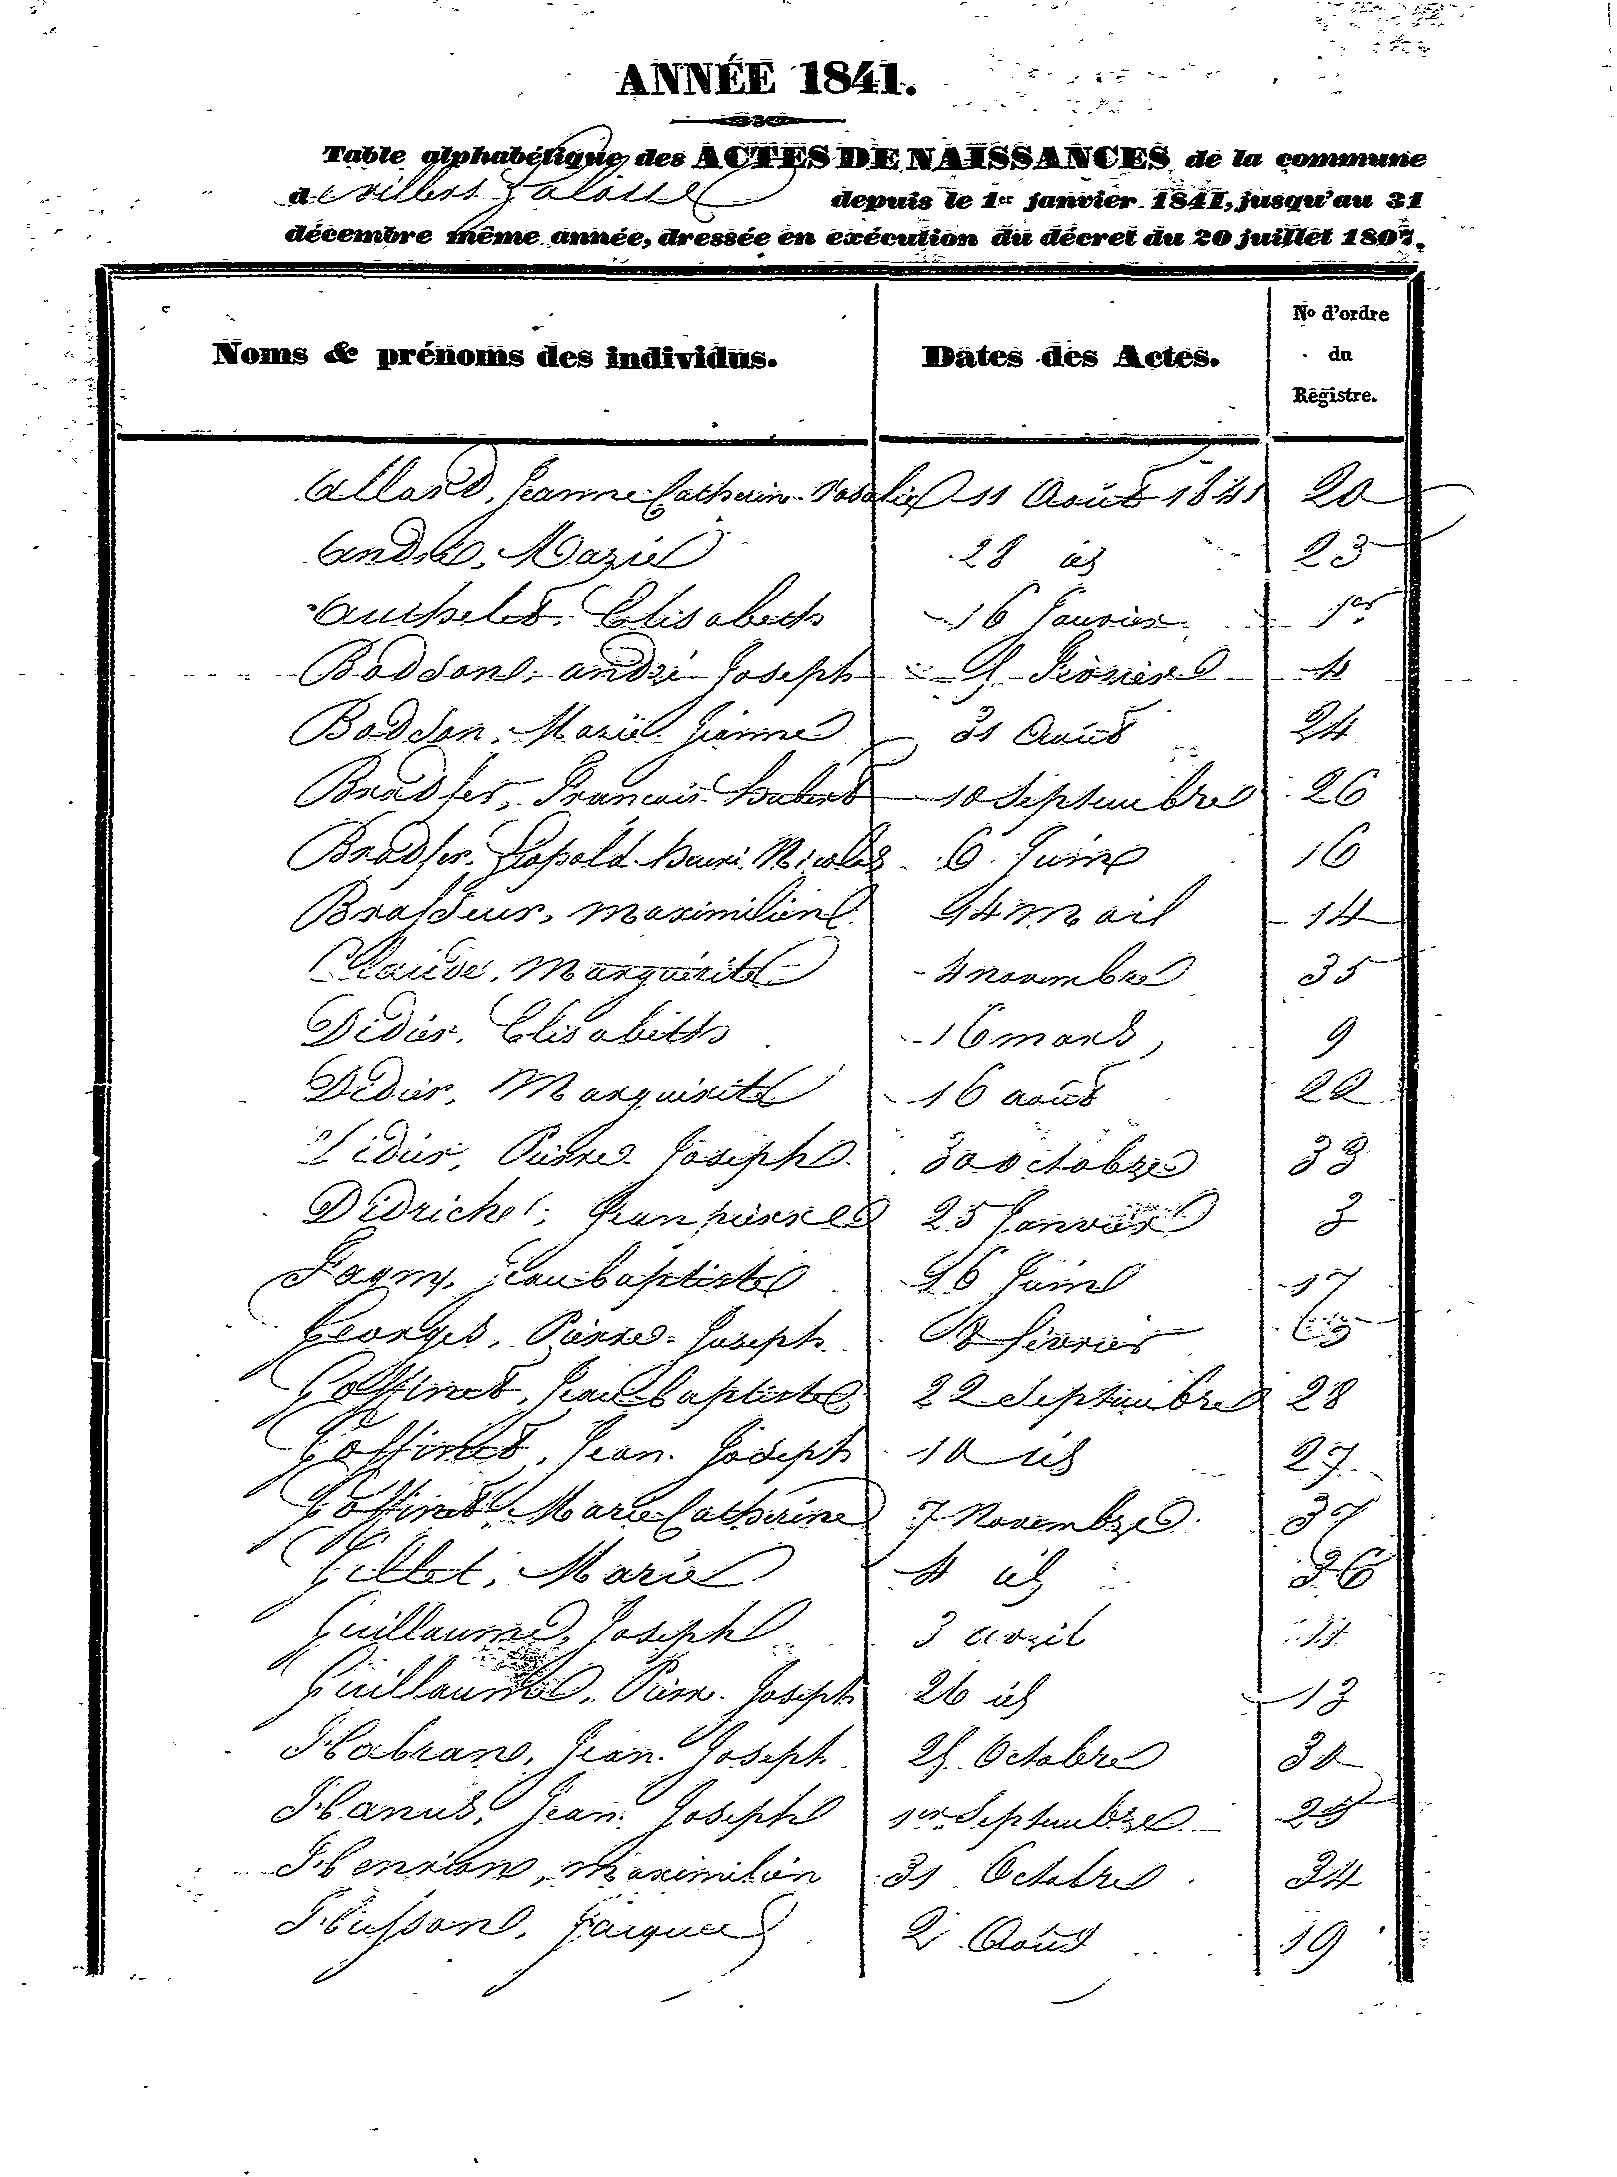 ANNÉE 1841.
Table alphabétique des ACTES DE NAISSANCES de la commune
de villers la loue depuis le 1er janvier 1841, jusqu'au 31
décembre même année, dressée en exécution du décret du 20 juillet 1807.
Noms & prénoms des individus. Dates des Actes. No d'ordre du Registre.
Allard, Jeanne Catherine Rosalie 11 Août 1841 20
André, Marie 28 id 23
Authelet, Elisabeth 16 Janvier 1er
Bodson, andré Joseph 9 Février 4
Bodson, Marie Jeanne 31 Août 24
Bradfer, François hubert 10 Septembre 26
Bradfer, Léopold henri Nicolas 6 Juin 16
Brasseur, maximilien 14 mai 14
Claude, Marguérite 4 novembre 35
Didier, Elisabeth 16 mars 9
Didier, Marguérite 16 août 22
Didier, Pierre Joseph 30 octobre 33
Didriche, Jean pierre 25 Janvier 3
Fagny, Jean baptiste 16 Juin 17
Georges, Pierre Joseph 18 février
Goffinet, Jean baptiste 22 Septembre 28
Goffinet, Jean Joseph 10 id 27
Goffinet, Marie Catherine 7 Novembre 37
Gillet, Marie 4 id 36
Guillaume, Joseph 3 avril 11
Guillaume, Pierre Joseph 26 id 13
Habran, Jean Joseph 9 Octobre 30
Hanus, Jean Joseph 1er Septembre 25
Henrion, maximilien 31 Octobre 34
Husson, Jacques 2 Août 19